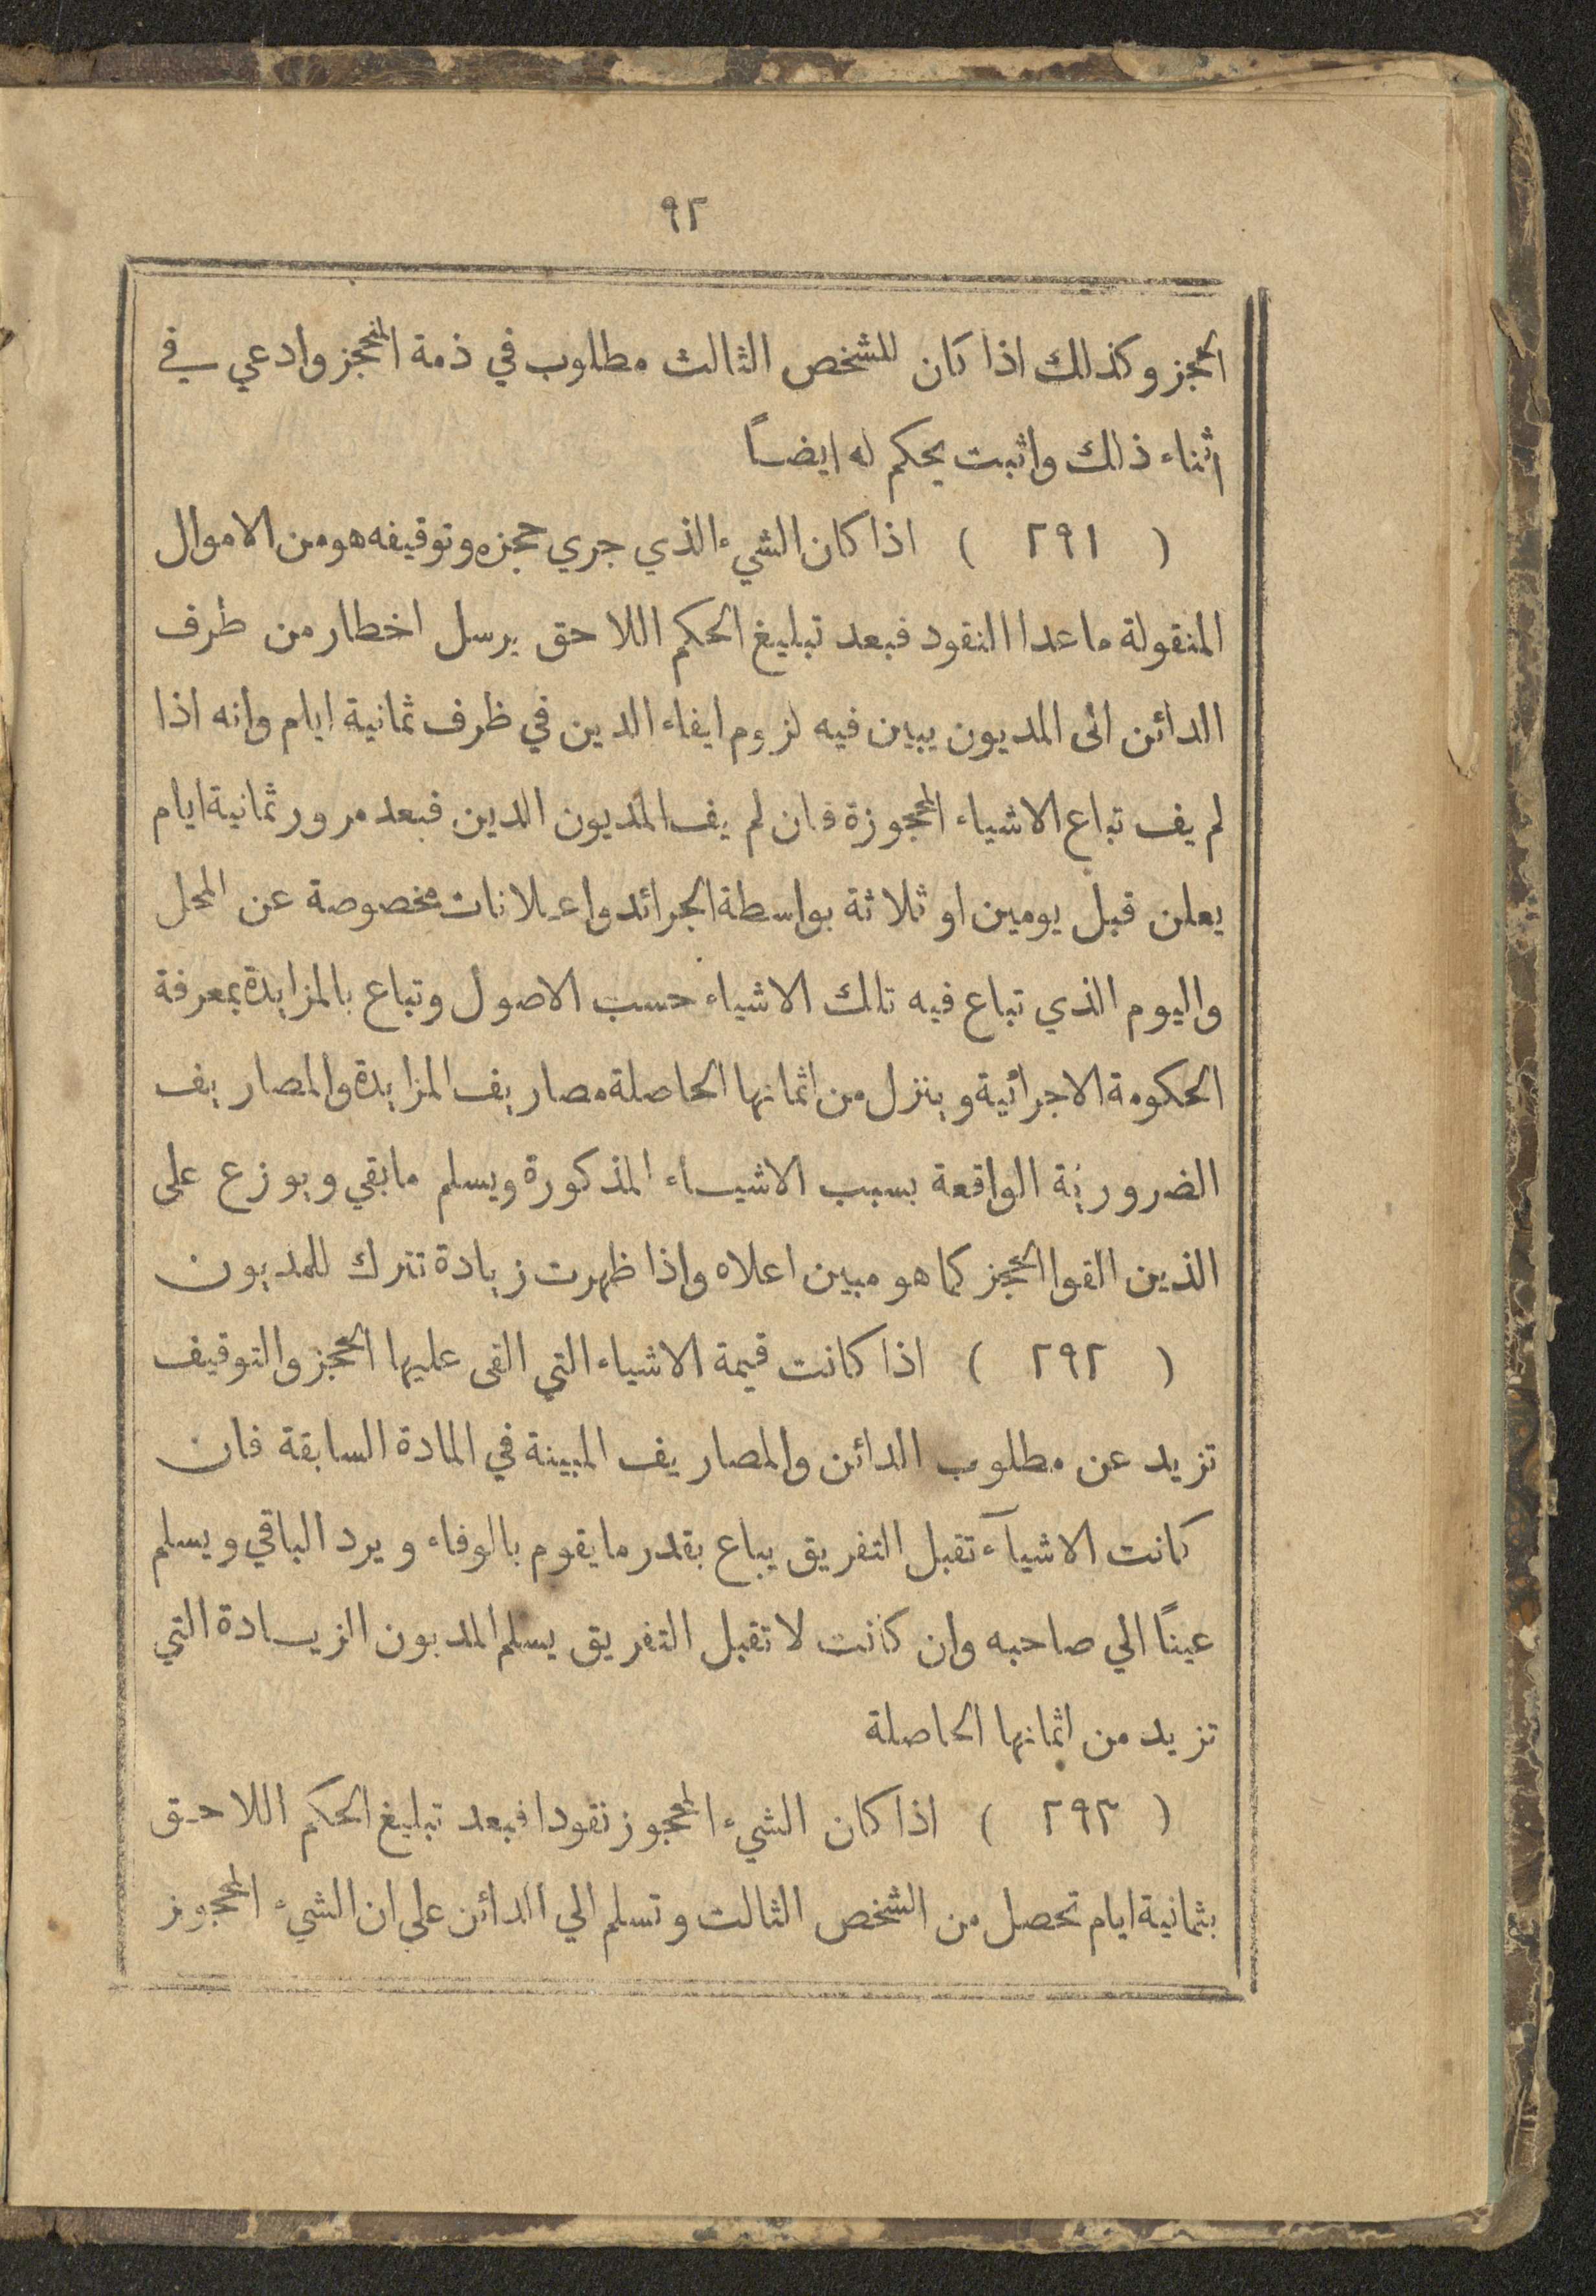 ٩٢
الحجز وكذلك اذا كان للشخص الثالث مطلوب في ذمة المحجز وادعي في
اثناء ذلك واثبت يحكم له ايضاً
( ٢٩١ ) اذا كان الشيء الذي جري حجزه وتوقيفه هو من الاموال
المنقولة ما عدا النقود فبعد تبليغ الحكم اللاحق يرسل اخطار من طرف
الدائن الى المديون يبين فيه لزوم ايفاء الدين في ظرف ثمانية ايام وانه اذا
لم يف تباع الاشياء المحجوزة فان لم يف المديون الدين فبعد مرور ثمانية ايام
يعلن قبل يومين او ثلاثة بواسطة الجرائد واعلانات مخصوصة عن المحل
واليوم الذي تباع فيه تلك الاشياء حسب الاصول وتباع بالمزايدة بمعرفة
الحكومة الاجرائية وينزل من اثمانها الحاصلة مصاريف المزايدة والمصاريف
الضرورية الواقعة بسبب الاشياء المذكورة ويسلم ما بقي ويوزع على
الذين القوا الحجز كما هو مبين اعلاه واذا ظهرت زيادة تترك للمديون
( ٢٩٢ ) اذا كانت قيمة الاشياء التي القى عليها الحجز والتوقيف
تزيد عن مطلوب الدائن والمصاريف المبينة في المادة السابقة فان
كانت الاشيآء تقبل التفريق يباع بقدر ما يقوم بالوفاء ويرد الباقي ويسلم
عيناً الي صاحبه وان كانت لا تقبل التفريق يسلم المديون الزيادة التي
تزيد من اثمانها الحاصلة
( ٢٩٣ ) اذا كان الشيء المحجوز نقودا فبعد تبليغ الحكم اللاحق
بثمانية ايام تحصل من الشخص الثالث وتسلم الي الدائن علي ان الشيء المحجوز